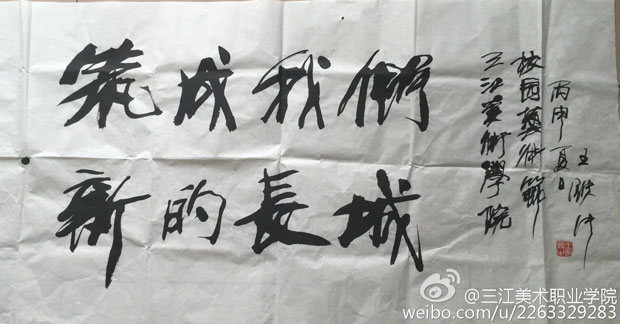 筑成我們
新的長城
三江美術學院
校园藝術節
丙申夏日
王
@三江美术职业学院
weibo.com/u/2263329283